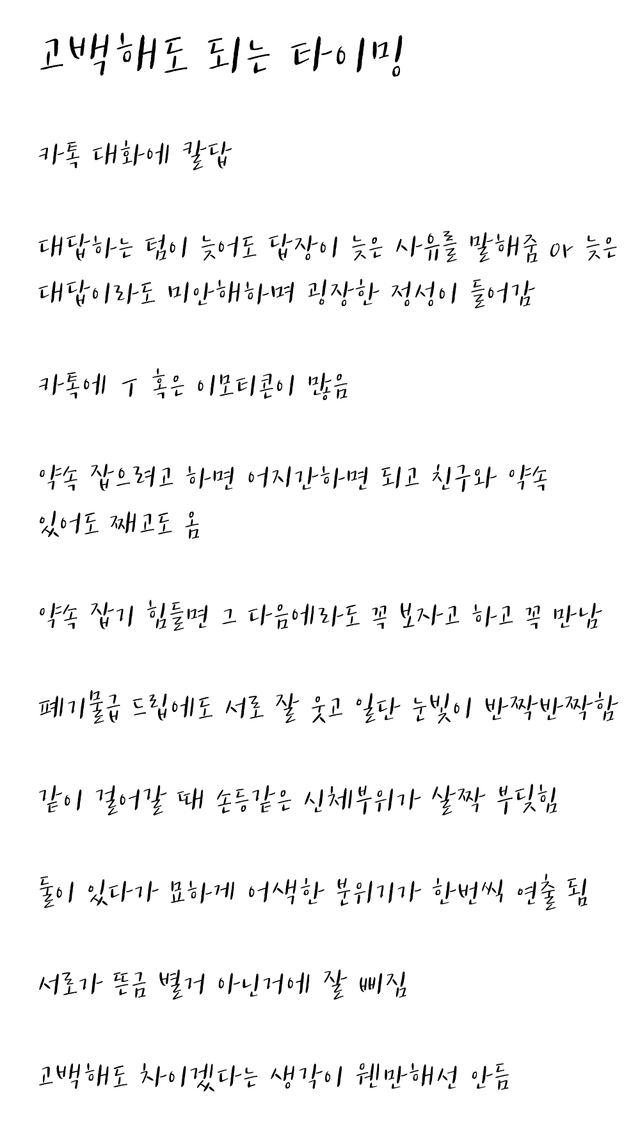 고백해도 되는 타이밍
카톡 대화에 칼답
대답하는 텀이 늦어도 답장이 늦은 사유를 말해줌 or 늦은
대답이라도 미안해하며 굉장한 정성이 들어감
카톡에 ㅜ 혹은 이모티콘이 많음
약속 잡으려고 하면 어지간하면 되고 친구와 약속
있어도 째고도 옴
약속 잡기 힘들면 그 다음에라도 꼭 보자고 하고 꼭 만남
폐기물급 드립에도 서로 잘 웃고 일단 눈빛이 반짝반짝함
같이 걸어갈 때 손등같은 신체부위가 살짝 부딪힘
둘이 있다가 묘하게 어색한 분위기가 한번씩 연출 됨
서로가 뜬금 별거 아닌거에 잘 삐짐
고백해도 차이겠다는 생각이 웬만해선 안듬